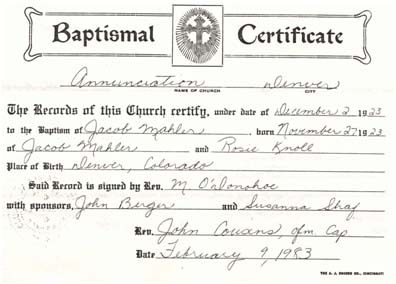 Baptismal Certificate
Annunciation Denver
NAME OF CHURCH CITY
The Records of this Church certify, under date of December 2 1923
to the Baptism of Jacob Mahler, born November 27 1923
of Jacob Mahler and Rosie Knoll
Place of Birth Denver, Colorado
Said Record is signed by Rev. M O'Donohoe
with sponsors, John Berger and Susanna Shaf
Rev. John Cousins, ofm Cap
Date February 9, 1983
THE A. J. CO., CINCINNATI